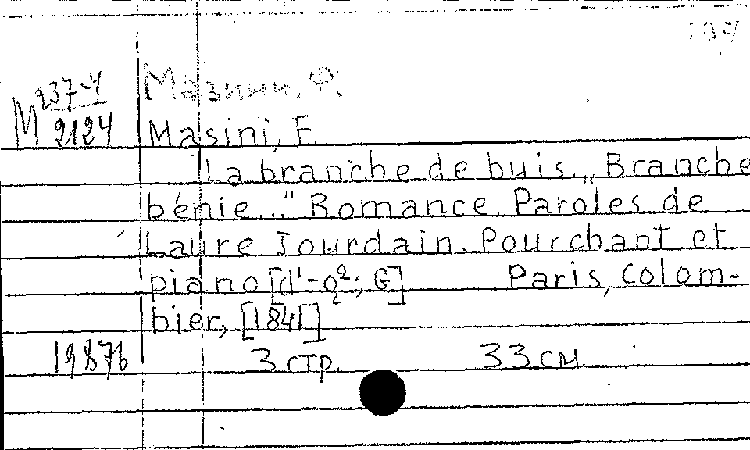 Мазини, Ф.
M 237-4
2124
Masini, F.
La branche de buis. „Branche
bénie..." Romance. Paroles de
Laure Jourdain. Pour chant et
piano [d¹-g²; G] Paris, Colom-
bier, [1841]
19876 3 стр. 33 см